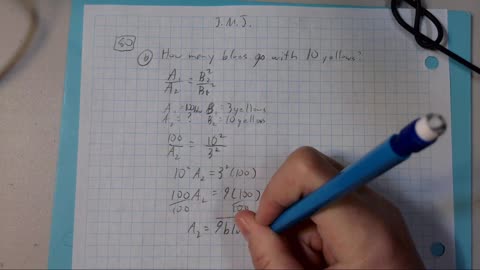 J.M.J.
50
b) How many bloos go with 10 yallows?
A₁/A₂ = B₂²/B₁²
A₁ = 100 B₁ = 3 yallows
A₂ = ? B₂ = 10 yallows
100/A₂ = 10²/3²
10² A₂ = 3²(100)
100 A₂/100 = 9(100)/100
A₂ = 9